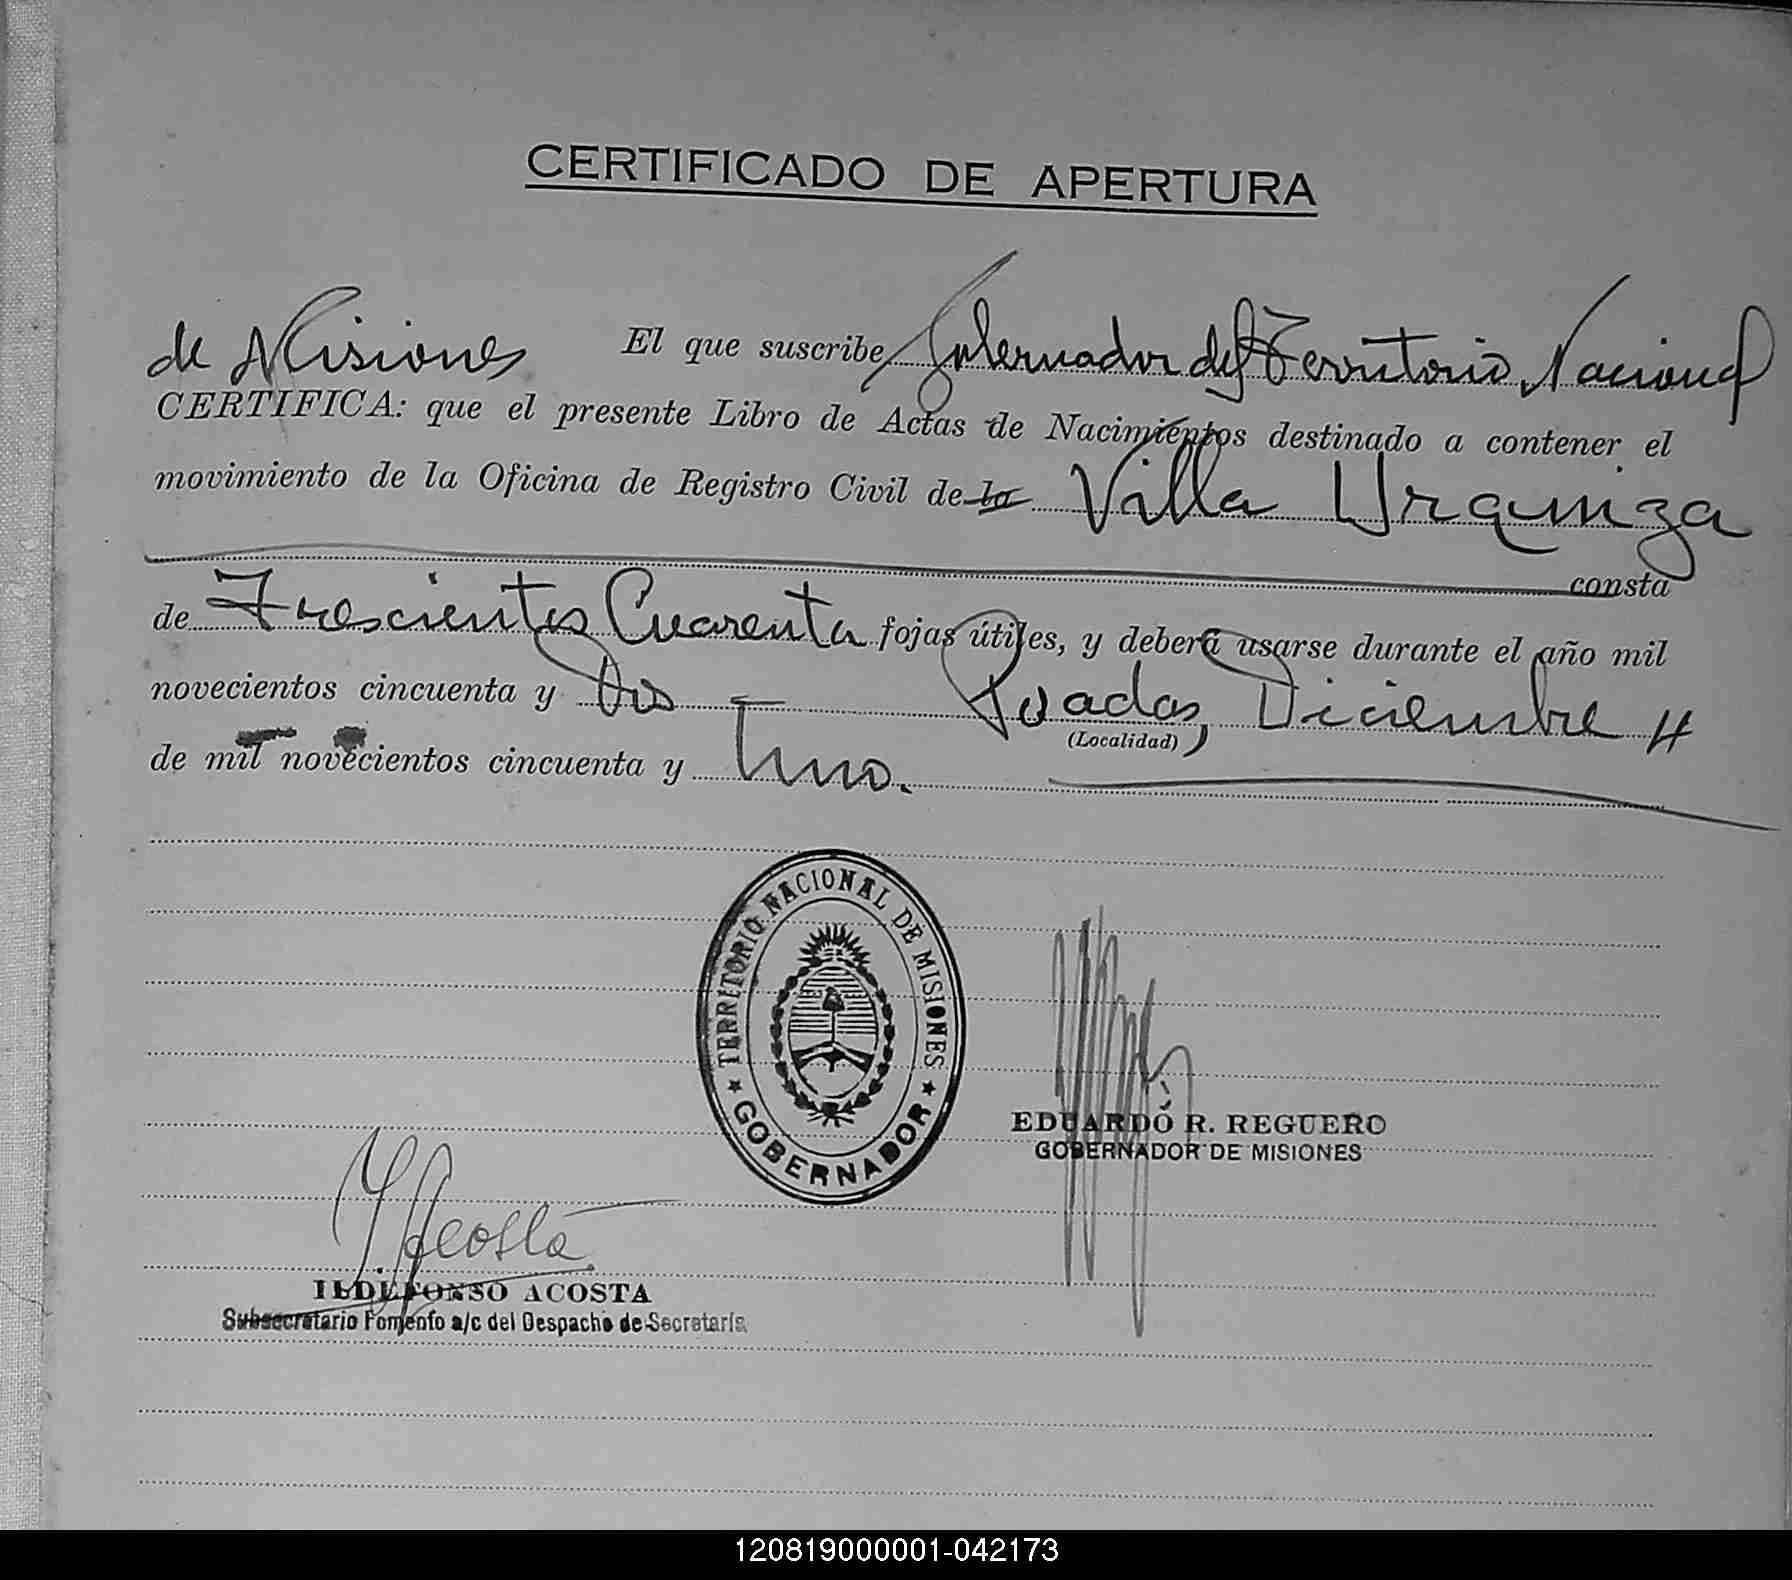 CERTIFICADO DE APERTURA
El que suscribe, Gobernador del Territorio Nacional
de Misiones
CERTIFICA: que el presente Libro de Actas de Nacimientos destinado a contener el
movimiento de la Oficina de Registro Civil de la Villa Urquiza
consta
de Trescientos Cuarenta fojas útiles, y deberá usarse durante el año mil
novecientos cincuenta y Dos Posadas, Diciembre 4
(Localidad)
de mil novecientos cincuenta y Uno.
TERRITORIO NACIONAL DE MISIONES
★ GOBERNADOR ★
EDUARDO R. REGUERO
GOBERNADOR DE MISIONES
Acosta
ILDEFONSO ACOSTA
Subsecretario Fomento a/c del Despacho de Secretaría
120819000001-042173